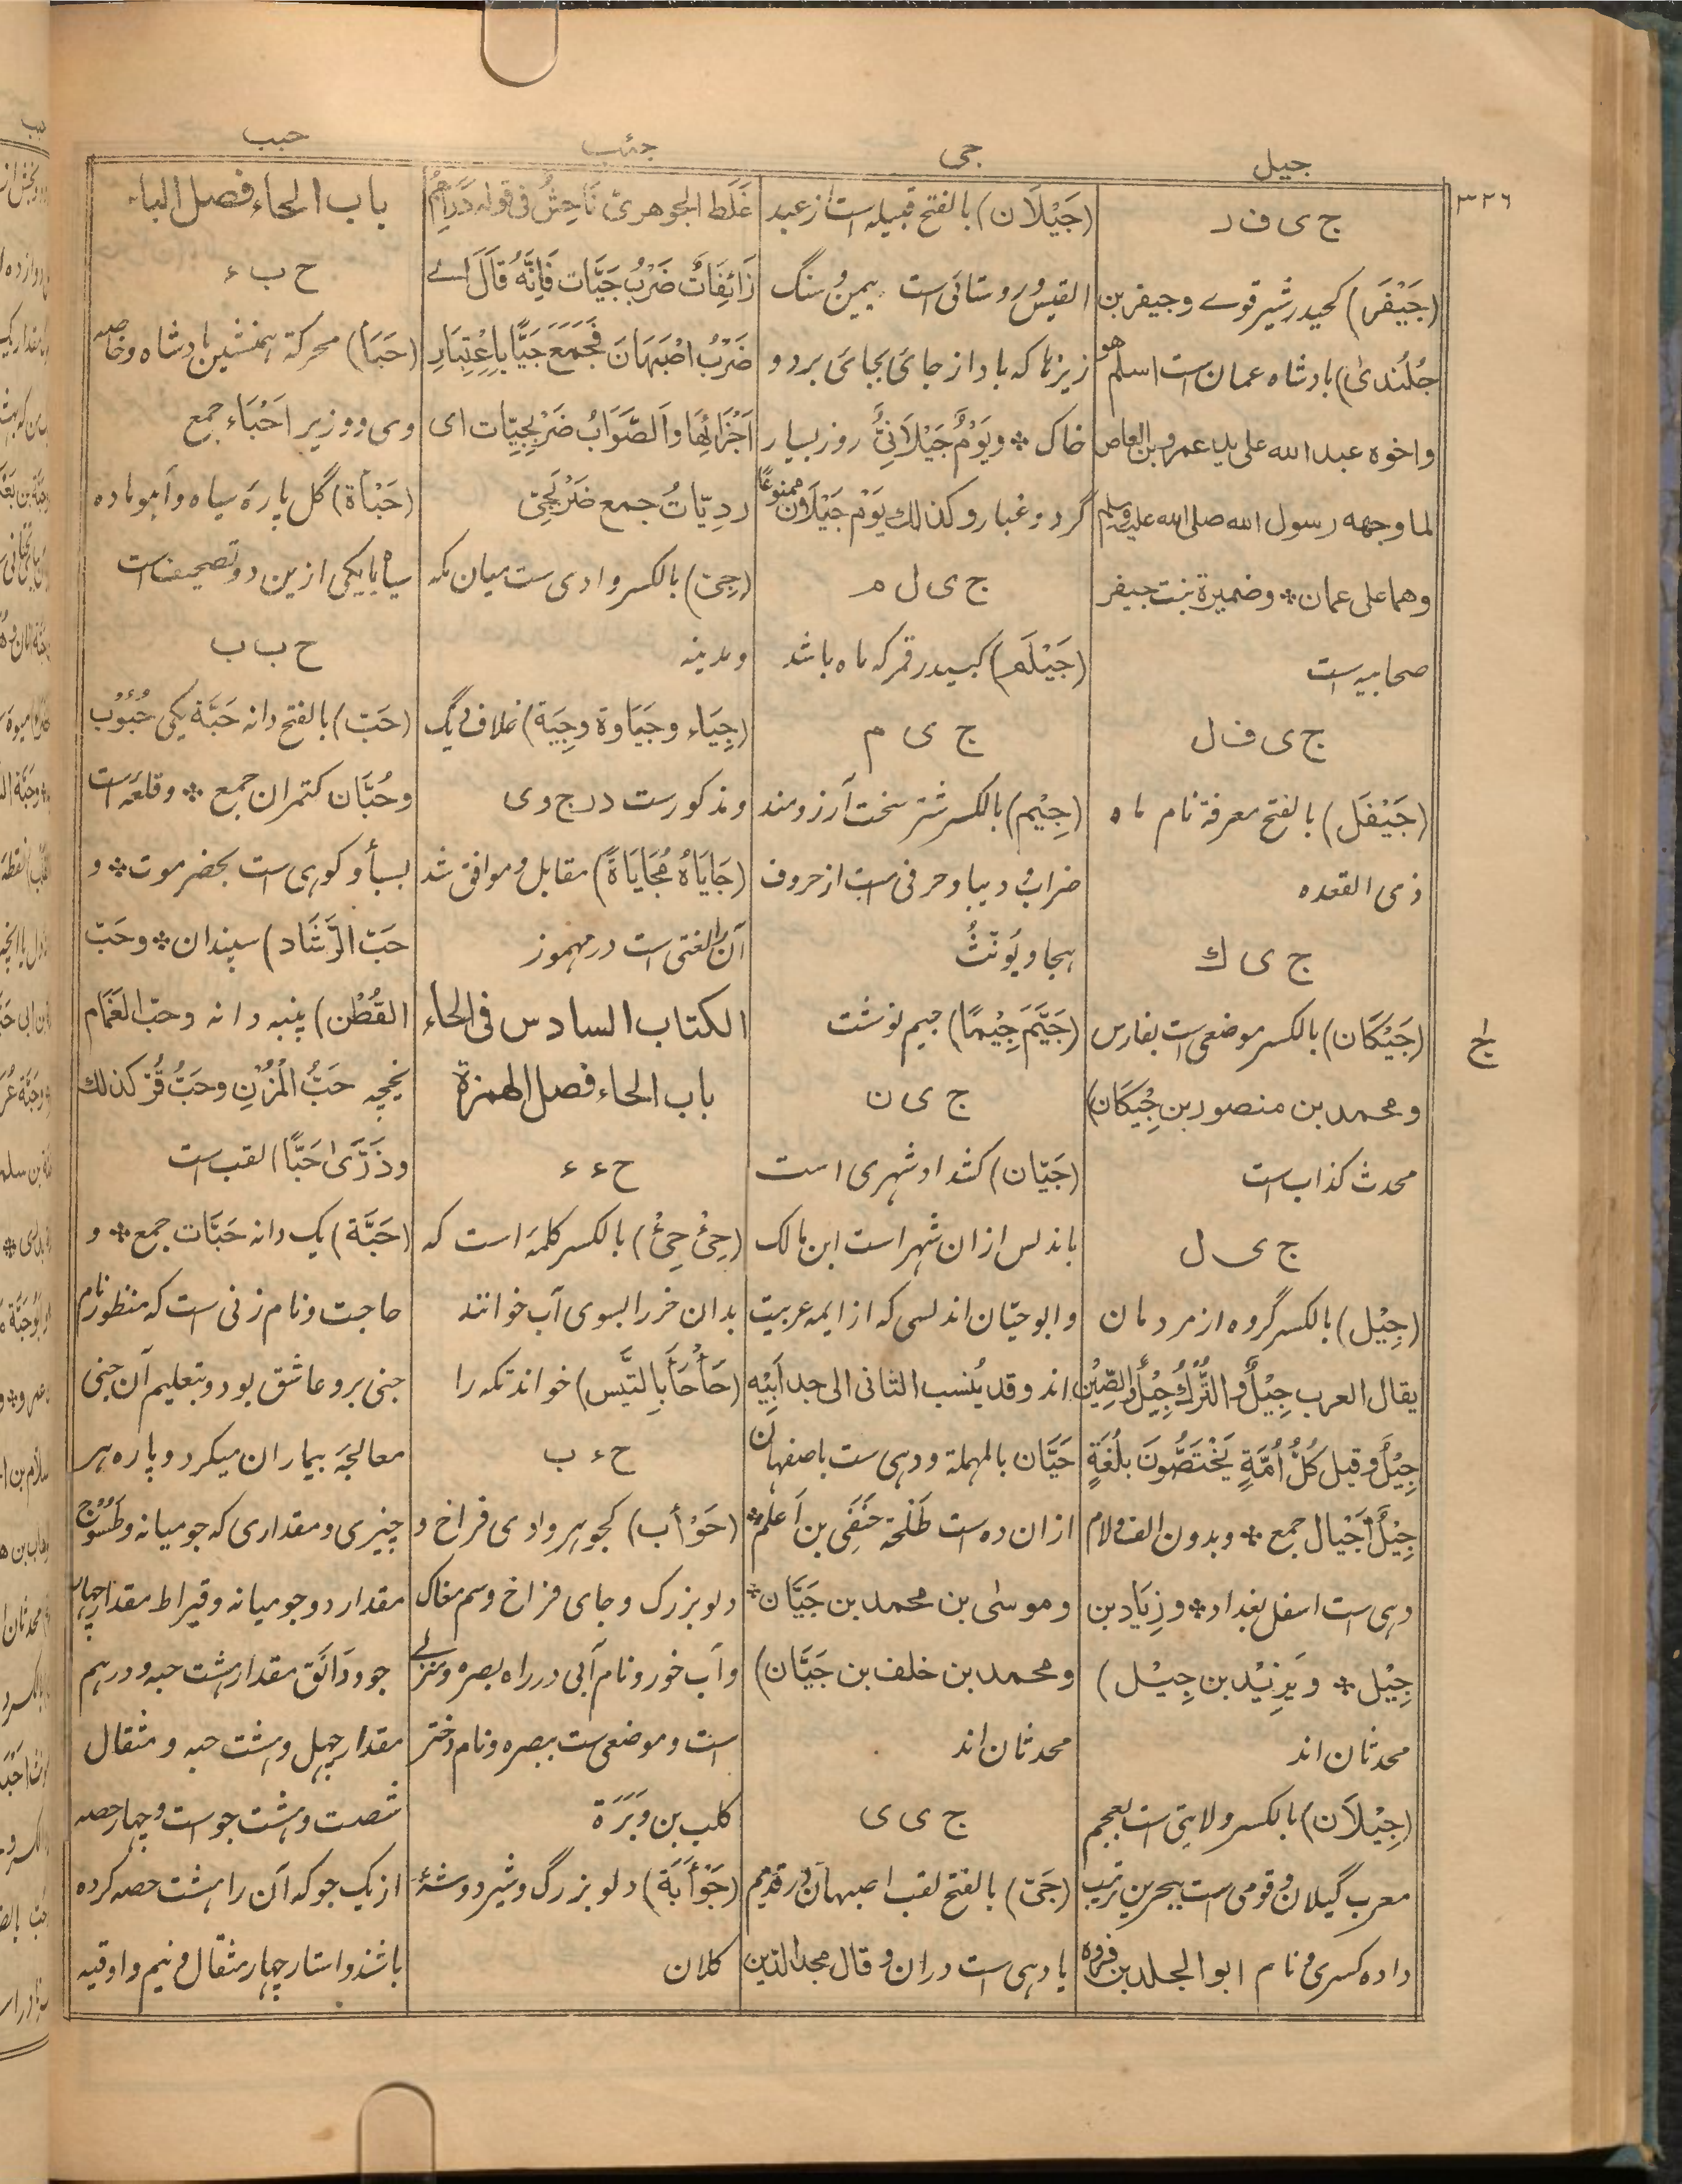 جیل
جی
جئب
حبب
۳۲۶
ج ی ف ر
(جَیْفَر) کحیدر شیر قوے وجیفر بن
جُلُنْدیٰ) بادشاه عمان است اسلم هو
واخوه عبد الله علی ید عمرو بن العاص
لما وجهه رسول الله صلی الله علیه وسلم
وهما علی عمان * وضمیرة بنت جیفر
صحابیه است
ج ی ف ل
(جَیْفَل) بالفتح معرفة نام ماه
ذی القعده
ج ی ك
(جَیْکَان) بالکسر موضعی است بفارس
ومحمد بن منصور بن جِیْکَان)
محدث کذاب است
ج ی ل
(جِیْل) بالکسر گروه از مردمان
یقال العرب جِیْلٌ والتُّرْكُ جِیْلٌ والصِّیْن
جِیْلٌ وقیل کُلُّ اُمَّةٍ یَخْتَصُّونَ بِلُغَةٍ
جِیْلٌ اَجْیَال جمع * وبدون الف ولام
دهی است اسفل بغداد * وزِیَاد بن
جِیْل * ویَزِیْد بن جِیْل)
محدثان اند
(جِیْلَان) بالکسر ولایتی است بعجم
معرب گیلان وقومی است ببحرین ترتیب
داده کسری ونام ابو الجلد بن فروه
(جَیْلَان) بالفتح قبیله است از عبد
القیس وروستائی است بیمن وسنگ
ریزها که باد از جائی بجائی برد و
خاک * ویَوْمٌ جَیْلَانِیٌّ روز بسیار
گرد وغبار وکذلك یَوْم جَیْلَان ممنوعًا
ج ی ل م
(جَیْلَم) کحیدر قمر که ماه باشد
ج ی م
(جِیْم) بالکسر شتر سخت آرزومند
ضراب ودیبا وحرفی است از حروف
هجا ویُونّثُ
(جَیَّمَ جِیْمًا) جیم نوشت
ج ی ن
(جَیّان) کشداد شهری است
باندلس ازان شهر است ابن مالک
وابو حیّان اندلسی که از ایمه عربیت
اند وقد یُنسب الثانی الی جد اَبِیْه
حَیَّان بالمهملة ودهی ست باصفهان
ازان ده ست طَلْحَة حَنَفِی بن اَعْلَم *
وموسٰی بن محمد بن جَیَّان *
ومحمد بن خلف بن جَیَّان)
محدثان اند
ج ی ی
(جَیّ) بالفتح لقب اصبهان در قدیم
یا دهی است دران وقال مجد الدین
غَلَط الجوهریّ فَاحِشٌ فی قوله دَرَاهِمُ
زَائِفَاتٌ ضَرْبُ جَیَّات فَاِنَّهُ قَالَ اے
ضَرْبُ اصْبَهَانَ فَجَمَعَ جَیًّا بِاِعْتِبَارِ
اَجْزَائِهَا وَالصَّوَابُ ضَرْبَجِیّات ای
رَدِیّاتُ جمع ضَرْبَجِیّ
(جِیّ) بالکسر وادی ست میان مکه
ومدینه
(جِیَاء وجَیَاوة وجِیَة) غلاف دیگ
ومذکورست در ج و ی
(جَایَاهُ مُجَایَاةً) مقابل وموافق شد
آن را لغتی است در مهموز
الکتاب السادس فی الحاء
باب الحاء فصل الهمزة
ح ء ء
(حِئْ حِئْ) بالکسر کلمه است که
بدان خر را بسوی آب خوانند
(حَأْحَأَ بِالتَّیْس) خواند تکه را
ح ء ب
(حَوْأَب) کجوهر وادی فراخ و
دلو بزرگ وجای فراخ وسم مغاک
وآب خور ونام آبی در راه بصره ومنزلے
است وموضعی ست ببصره ونام دختر
کلب بن وَبَرَة
(حَوْأَبَة) دلو بزرگ وشیردوشهٔ
کلان
باب الحاء فصل الباء
ح ب ء
(حَبَأ) محرکة همنشین بادشاه وخاصه
وی ووزیر اَحْبَاء جمع
(حَبْأة) گل پارهٔ سیاه وآهو ماده
سیاه یا یکی ازین دو تصحیف است
ح ب ب
(حَبّ) بالفتح دانه حَبَّة یکی حُبُوْب
وحُبَّان کتمران جمع * وقلعه است
بسبأ وکوهی است بحضرموت * و
حَبّ الرَّشَاد) سپندان * وحَبّ
القُطْن) پنبه دانه وحبّ الغَمَام
یخچه حَبُّ الْمُزْنِ وحَبُّ قُرّ کذلك
وذَرّیٰ حَبًّا) لقب است
(حَبَّة) یک دانه حَبَّات جمع * و
حاجت ونام زنی است که منظور نام
جنی برو عاشق بود وبتعلیم آن جنی
معالجهٔ بیماران میکرد وپاره هر
چیزی ومقداری که جو میانه وطَسُّوْج
مقدار دو جو میانه وقیراط مقدار چهار
جو ودَانَق مقدار هشت حبه ودرهم
مقدار چهل وهشت حبه ومثقال
شصت وهشت جو است وچهار حصه
از یک جو که آن را هشت حصه کرده
باشند واستار چهار مثقال ونیم واوقیه